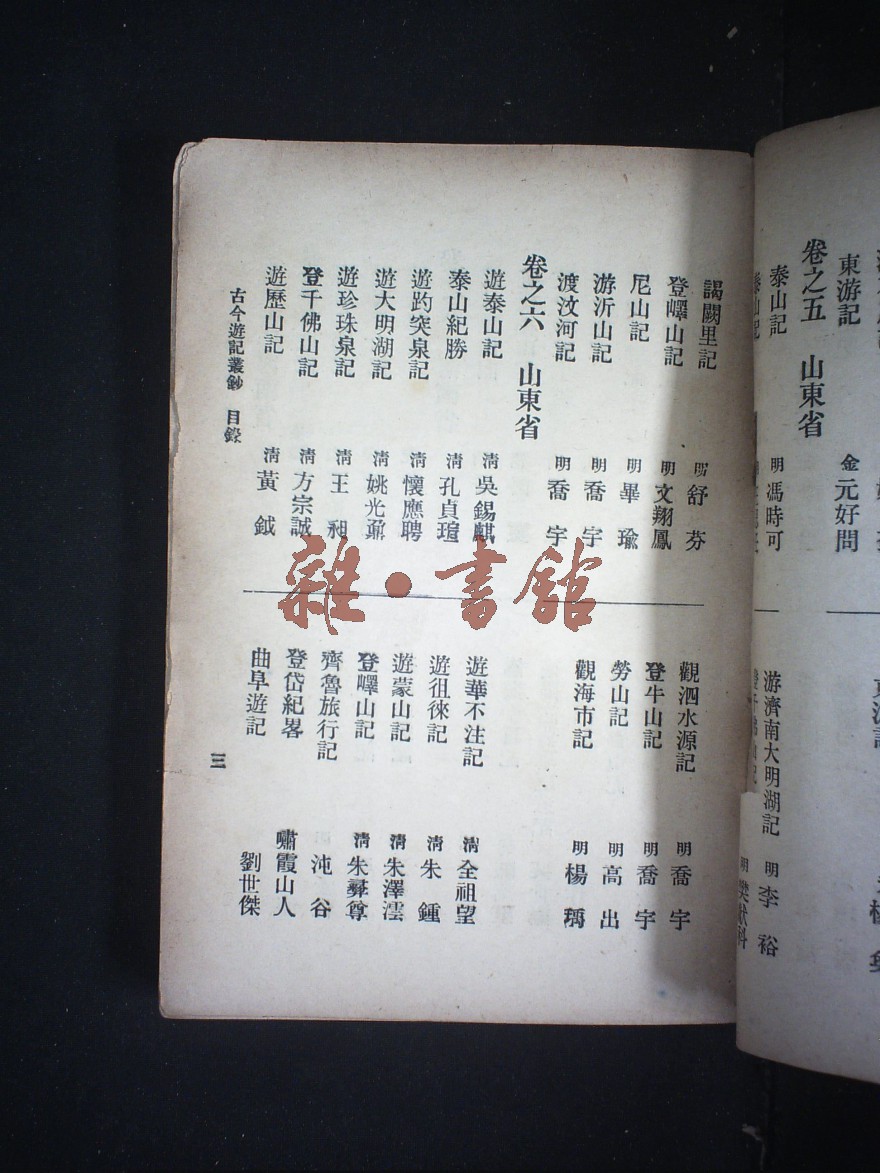 東游記
金 元好問
卷之五 山東省
泰山記
明 馮時可
游濟南大明湖記
明 李裕
謁闕里記
明 舒芬
登嶧山記
明 文翔鳳
尼山記
明 畢瑜
游沂山記
明 喬宇
渡汶河記
明 喬宇
觀泗水源記
明 喬宇
登牛山記
明 喬宇
勞山記
明 高出
觀海市記
明 楊
卷之六 山東省
遊泰山記
清 吳錫麒
泰山紀勝
清 孔貞瑄
遊趵突泉記
清 懷應聘
遊大明湖記
清 姚光鼐
遊珍珠泉記
清 王昶
登千佛山記
清 方宗誠
遊歷山記
清 黃鉞
遊華不注記
清 全祖望
遊徂徠記
清 朱鍾
遊蒙山記
清 朱澤澐
登嶧山記
清 朱彝尊
齊魯旅行記
沌谷
登岱紀畧
嘯霞山人
曲阜遊記
劉世傑
古今遊記叢鈔 目錄
三
雜·書館